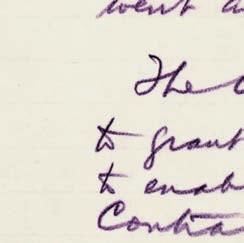 went a
The
to grant
to enab
Contra